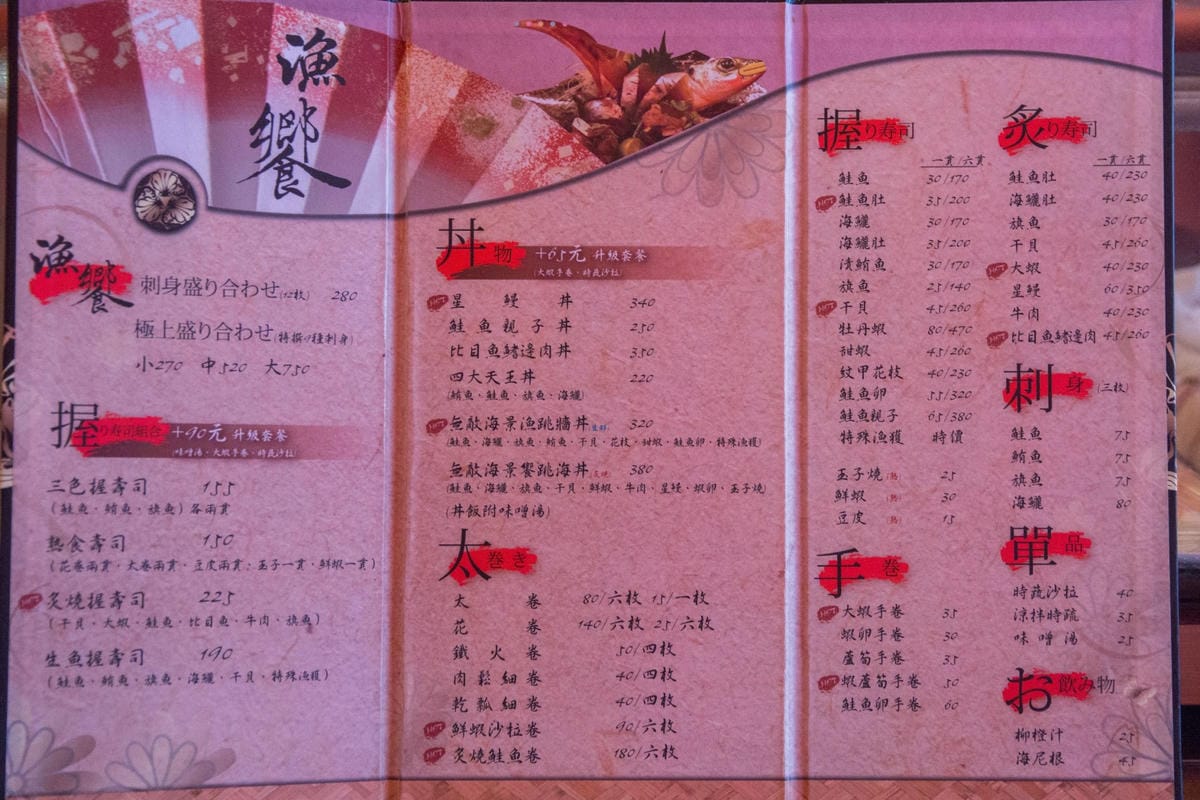 漁饗
漁饗
刺身盛り合わせ(12枚) 280
極上盛り合わせ(特撰9種刺身)
小270 中520 大750
握り寿司組合 +90元 升級套餐
(味噌湯、大蝦手卷、時蔬沙拉)
三色握壽司 155
(鮭魚、鮪魚、旗魚)各兩貫
熟食壽司 150
(花卷兩貫、太卷兩貫、豆皮兩貫;玉子一貫、鮮蝦一貫)
HOT 炙燒握壽司 225
(干貝、大蝦、鮭魚、比目魚、牛肉、旗魚)
生魚握壽司 190
(鮭魚、鮪魚、旗魚、海鱺、干貝、特殊漁獲)
丼物 +65元 升級套餐
(大蝦手卷、時蔬沙拉)
HOT 星鰻丼 340
鮭魚親子丼 250
比目魚鰭邊肉丼 350
四大天王丼 220
(鮪魚、鮭魚、旗魚、海鱺)
HOT 無敵海景漁跳牆丼(生鮮) 320
(鮭魚、海鱺、旗魚、鮪魚、干貝、花枝、甜蝦、鮭魚卵、特殊漁獲)
無敵海景饗跳海丼(炙燒) 380
(鮭魚、海鱺、旗魚、干貝、鮮蝦、牛肉、星鰻、蝦卵、玉子燒)
(丼飯附味噌湯)
太巻き
太卷 80/六枚 15/一枚
花卷 140/六枚 25/六枚
鐵火卷 50/四枚
肉鬆細卷 40/四枚
乾瓢細卷 40/四枚
HOT 鮮蝦沙拉卷 90/六枚
HOT 炙燒鮭魚卷 180/六枚
握り寿司
一貫/六貫
鮭魚 30/170
HOT 鮭魚肚 35/200
海鱺 30/170
海鱺肚 35/200
漬鮪魚 30/170
旗魚 25/140
HOT 干貝 45/260
牡丹蝦 80/470
甜蝦 45/260
紋甲花枝 40/230
鮭魚卵 55/320
鮭魚親子 65/380
特殊漁獲 時價
玉子燒(熟) 25
鮮蝦(熟) 30
豆皮(熟) 15
手巻
HOT 大蝦手卷 35
蝦卵手卷 30
蘆筍手卷 35
HOT 蝦蘆筍手卷 50
鮭魚卵手卷 60
炙り寿司
一貫/六貫
鮭魚肚 40/230
海鱺肚 40/230
旗魚 30/170
干貝 45/260
HOT 大蝦 40/230
星鰻 60/350
牛肉 40/230
HOT 比目魚鰭邊肉 45/260
刺身(三枚)
鮭魚 75
鮪魚 75
旗魚 75
海鱺 80
單品
時蔬沙拉 40
涼拌時蔬 35
味噌湯 25
お飲み物
柳橙汁 25
海尼根 45